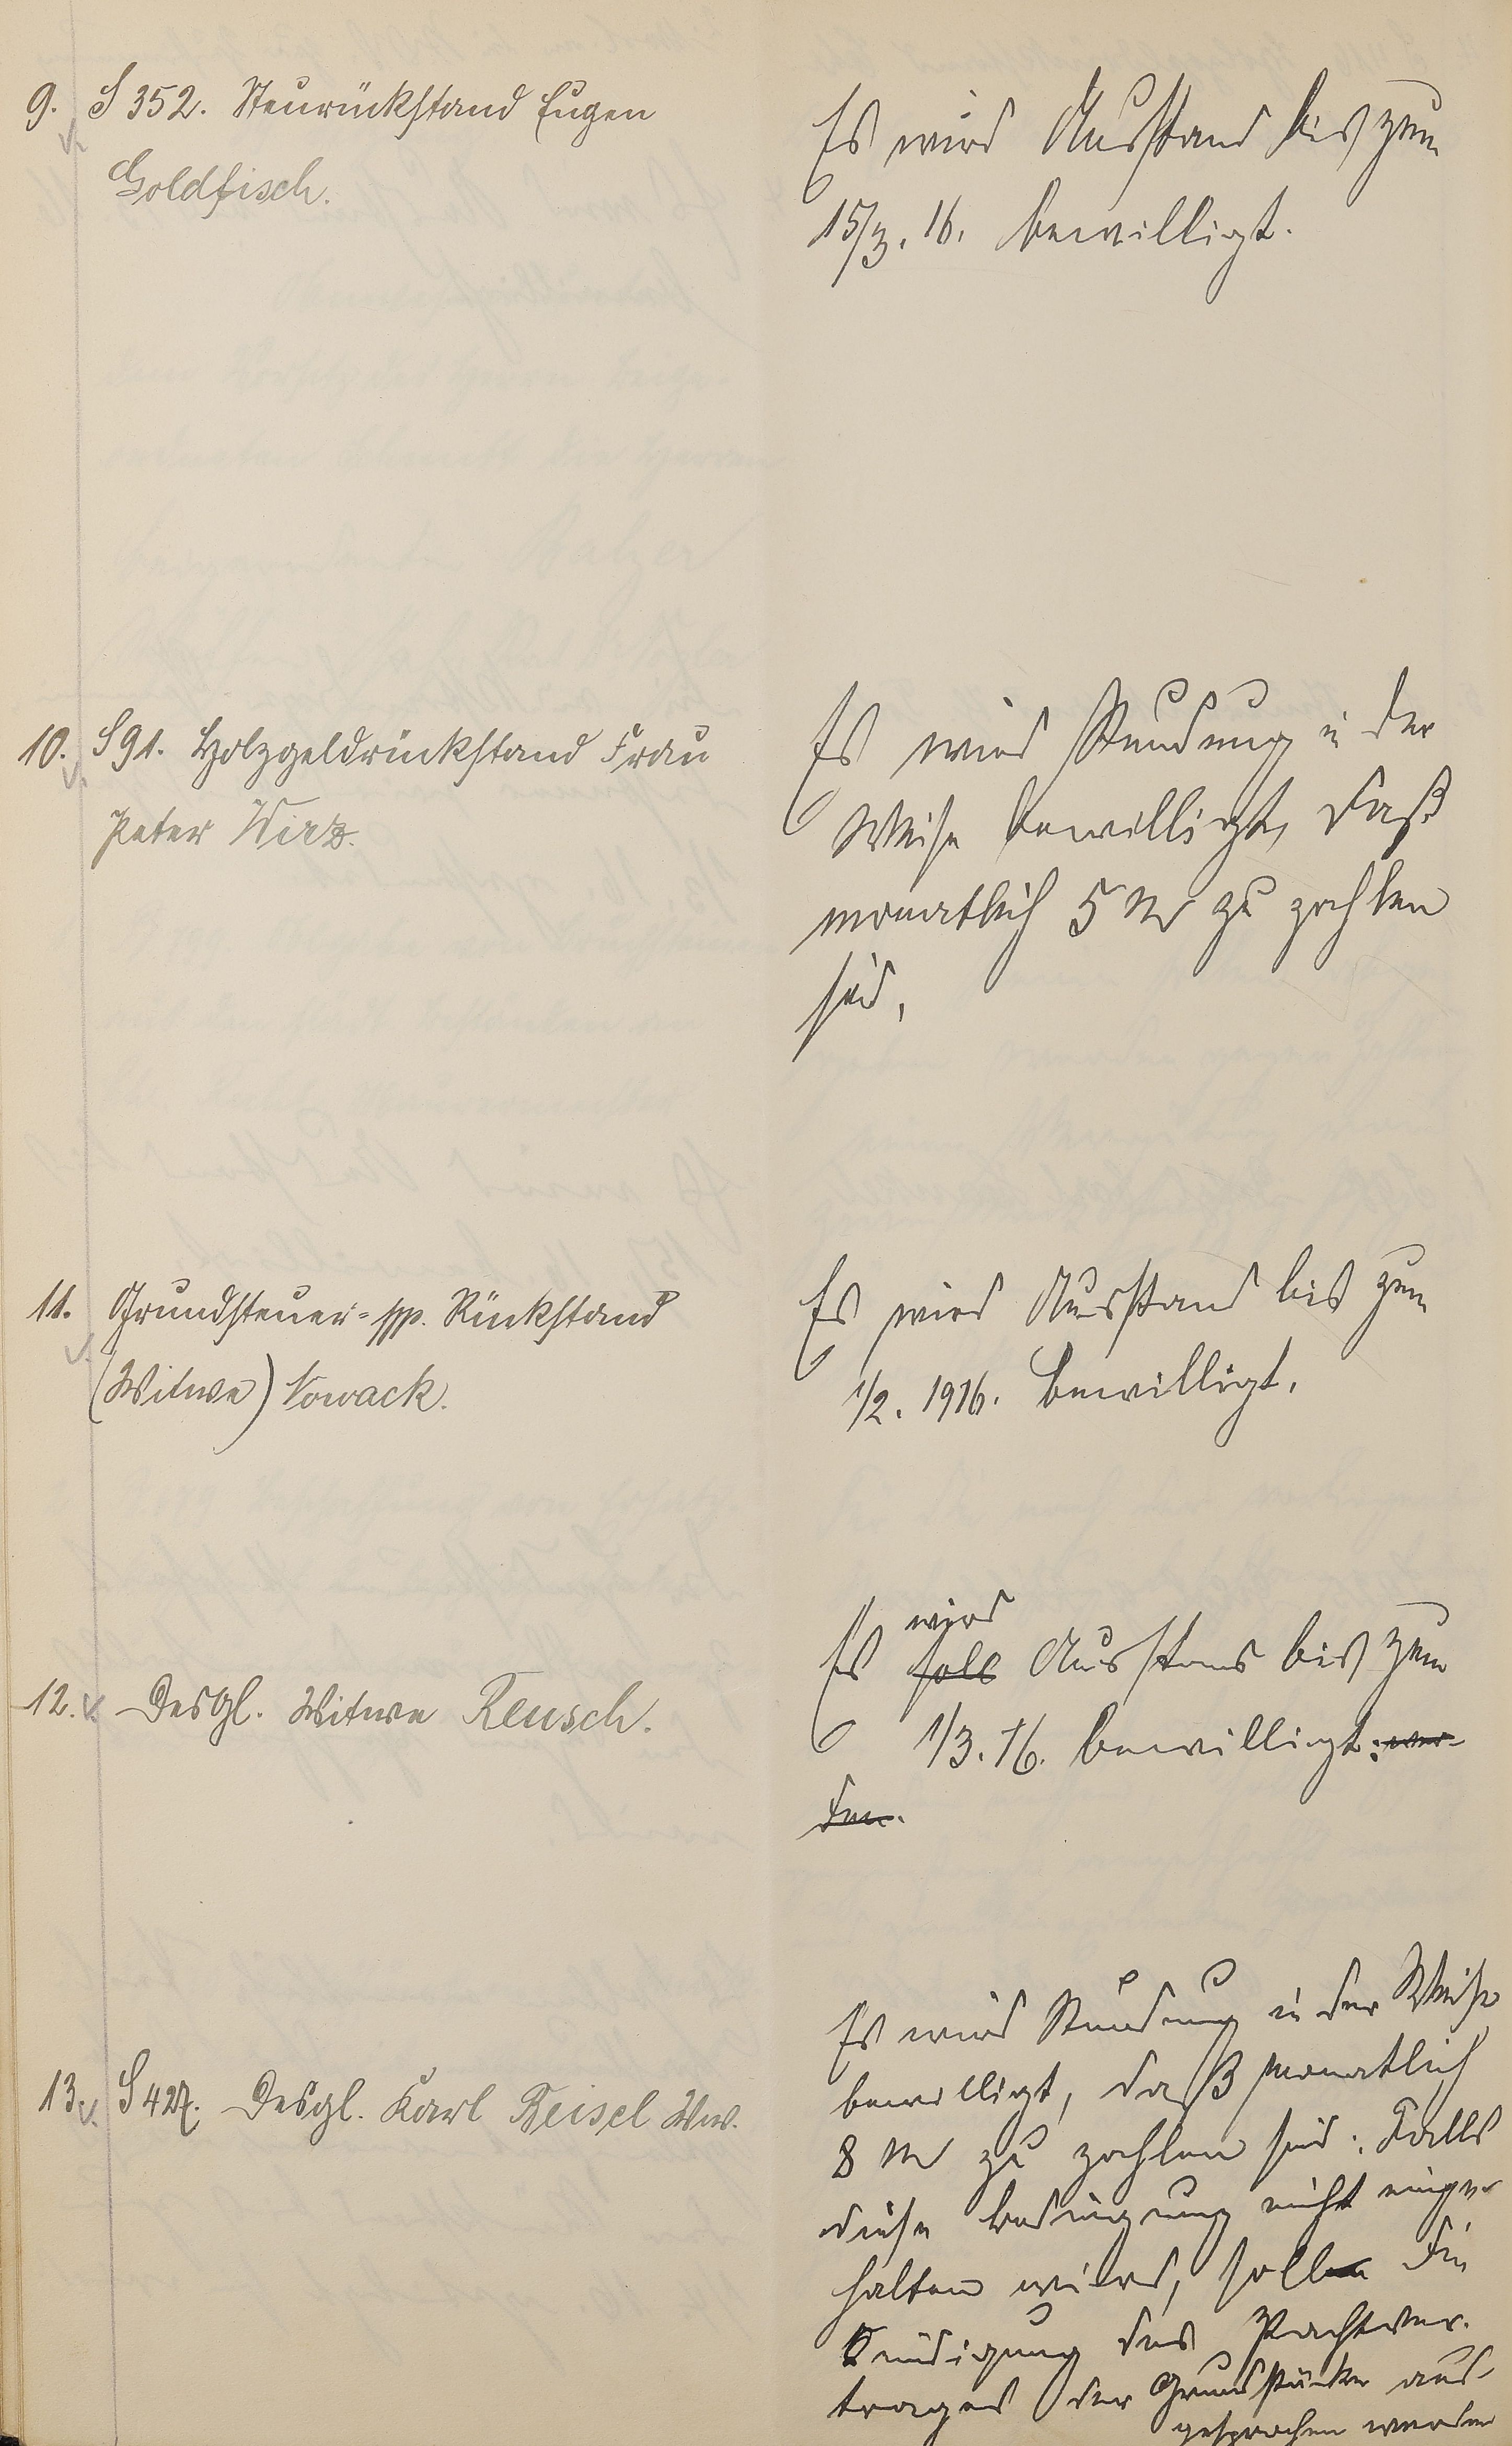 9. S 352. Steurückstand Eugen
Goldfisch.
Es wird Ausstand bis zum
15/3. 16. bewilligt.
10. S 91. Holzgeldrückstand Frau
Peter Wirz.
Es wird Stundung in der
Weise bewilligt, daß
monatlich 5 M zu zahlen
sind.
11. Grundsteuer- pp. Rückstand
(Witwe) Nowack.
Es wird Ausstand bis zum
1/2. 1916. bewilligt.
12. Desgl. Witwe Reusch.
wird
Es soll Ausstand bis zum
1/3. 16. bewilligt. wer-
den.
13. S 427. Desgl. Karl Beisel Ww.
Es wird Stundung in der Weise
bewilligt, daß monatlich
8 M zu zahlen sind. Falls
diese Bedingung nicht einge-
halten wird, soll die
Kündigung des Pachtver-
trages der Grundstücke aus-
gesprochen werden